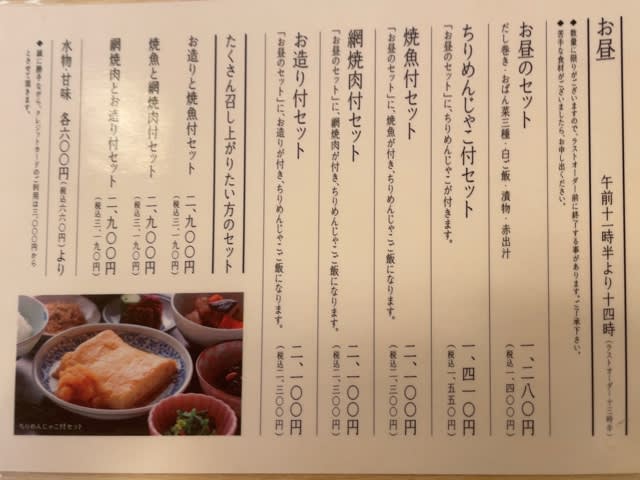 お昼
午前十一時半より十四時(ラストオーダー十三時半)
◆数量に限りがございますので、ラストオーダー前に終了する事があります。ご了承下さい。
◆苦手な食材がございましたら、お申し出ください。
お昼のセット
だし巻き・おばん菜三種・白ご飯・漬物・赤出汁
一、二八〇円
(税込一、四〇〇円)
ちりめんじゃこ付セット
「お昼のセット」に、ちりめんじゃこが付きます。
一、四一〇円
(税込一、五五〇円)
焼魚付セット
「お昼のセット」に、焼魚が付き、ちりめんじゃこご飯になります。
二、一〇〇円
(税込二、三〇〇円)
網焼肉付セット
「お昼のセット」に、網焼肉が付き、ちりめんじゃこご飯になります。
二、一〇〇円
(税込二、三〇〇円)
お造り付セット
「お昼のセット」に、お造りが付き、ちりめんじゃこご飯になります。
二、一〇〇円
(税込二、三〇〇円)
たくさん召し上がりたい方のセット
お造りと焼魚付セット
二、九〇〇円
(税込三、一九〇円)
焼魚と網焼肉付セット
二、九〇〇円
(税込三、一九〇円)
網焼肉とお造り付セット
二、九〇〇円
(税込三、一九〇円)
水物・甘味 各六〇〇円(税込六六〇円)より
◆誠に勝手ながら、クレジットカードのご利用は三、〇〇〇円から
とさせて頂きます。
ちりめんじゃこ付セット